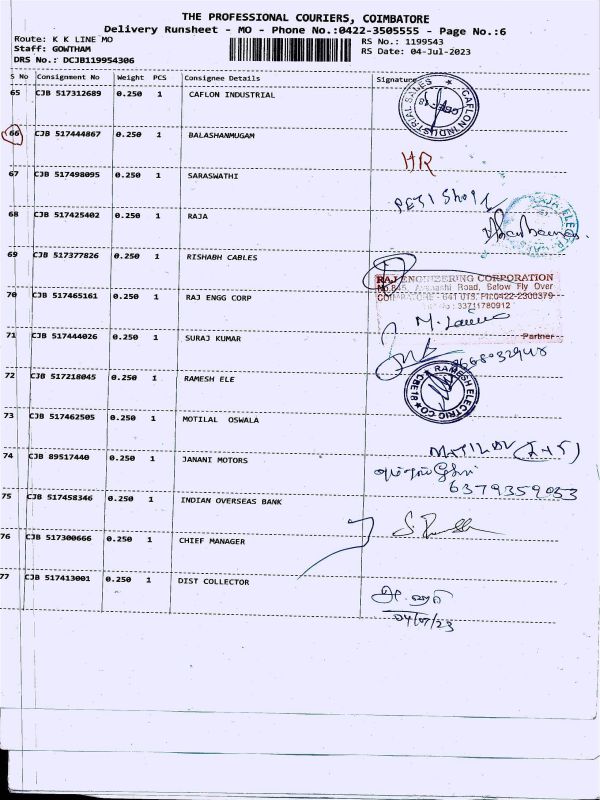 THE PROFESSIONAL COURIERS, COIMBATORE
Delivery Runsheet - MO - Phone No.:0422-3505555 - Page No.:6
Route: K K LINE MO
RS No.: 1199543
Staff: GOWTHAM
RS Date: 04-Jul-2023
DRS No.: DCJB119954306
S No Consignment No Weight PCS Consignee Details Signature
65 CJB 517312689 0.250 1 CAFLON INDUSTRIAL
CAFLON INDUSTRIAL SALES
66 CJB 517444867 0.250 1 BALASHANMUGAM
HR
67 CJB 517498095 0.250 1 SARASWATHI
68 CJB 517425402 0.250 1 RAJA
69 CJB 517377826 0.250 1 RISHABH CABLES
RAJ ENGINEERING CORPORATION
Road, Below Fly Over
70 CJB 517465161 1 0.250 RAJ ENGG CORP
Partner
71 CJB 517444026 0.250 1 SURAJ KUMAR
72 CJB 517218045 0.250 1 RAMESH ELE
RAMESH ELECTRIC CO
CBE18
73 CJB 517462505 0.250 1 MOTILAL OSWALA
74 CJB 89517440 0.250 1 JANANI MOTORS
6379359033
75 CJB 517458346 0.250 1 INDIAN OVERSEAS BANK
76 CJB 517300666 0.250 1 CHIEF MANAGER
77 CJB 517413001 0.250 1 DIST COLLECTOR
04/07/23